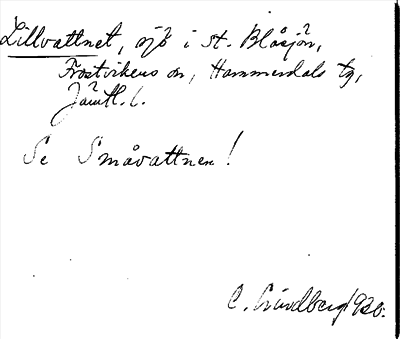 Lillvattnet, sjö i st. Blåsjön,
Frostvikens sn, Hammerdals tg,
Jämtl. l.
Se Småvattnen!
C. Lundberg 1930.